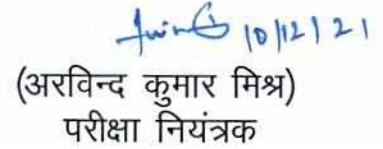 10/12/21
(अरविन्द कुमार मिश्र)
परीक्षा नियंत्रक